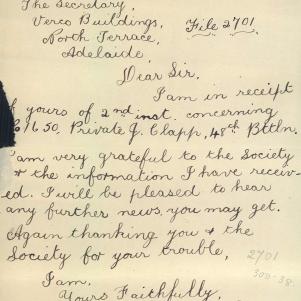 The Secretary,
Verco Buildings,
File 2701.
North Terrace,
Adelaide,
Dear Sir,
I am in receipt
of yours of 2nd inst. concerning
1650, Private J. Clapp, 48th Bttln.
I am very grateful to the Society
& the information I have receiv-
ed. I will be pleased to hear
any further news, you may get.
Again thanking you & the
Society for your trouble,
2701
I am,
Yours Faithfully,